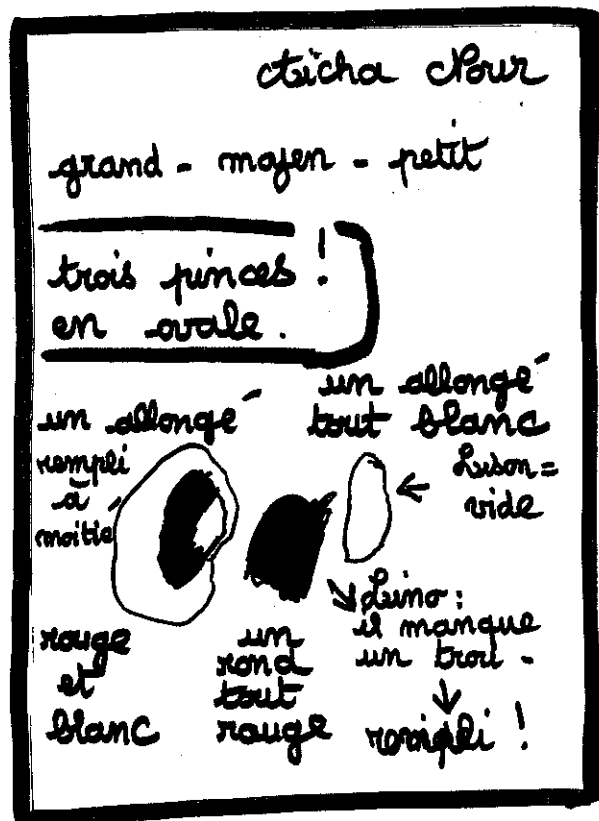 Aïcha Nour
grand - moyen - petit
trois pinces !
en ovale .
un allongé
rempli
à
moitié
un allongé
tout blanc
Luson =
vide
Luino :
il manque
un trou -
rempli !
rouge
et
blanc
un
rond
tout
rouge